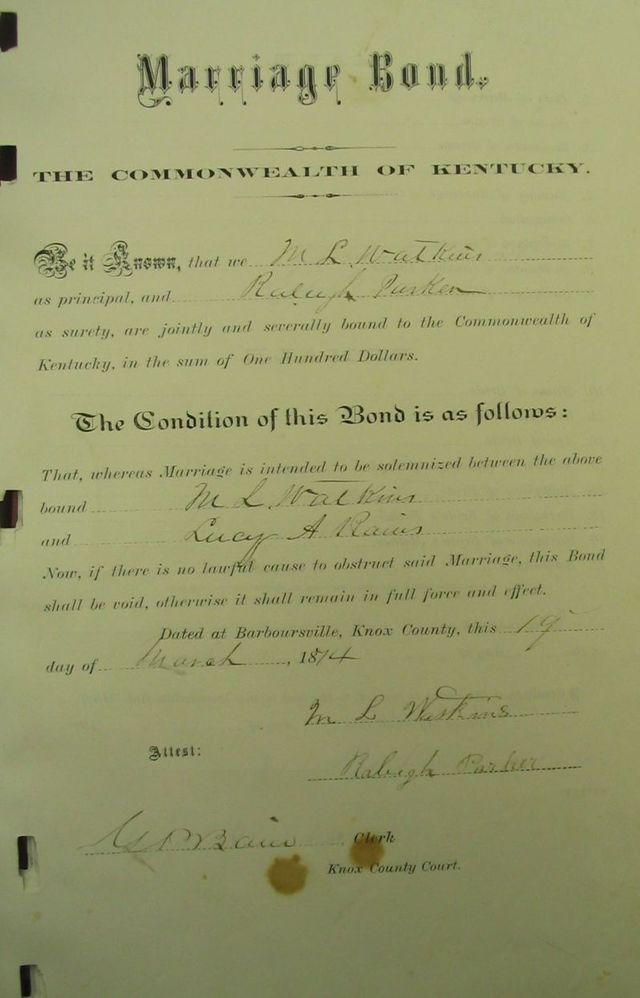 Marriage Bond.
THE COMMONWEALTH OF KENTUCKY.
Be it Known, that we M L Watkins
as principal, and Raleigh Parker
as surety, are jointly and severally bound to the Commonwealth of
Kentucky, in the sum of One Hundred Dollars.
The Condition of this Bond is as follows:
That, whereas Marriage is intended to be solemnized between the above
bound M L Watkins
and Lucy A Rains
Now, if there is no lawful cause to obstruct said Marriage, this Bond
shall be void, otherwise it shall remain in full force and effect.
Dated at Barboursville, Knox County, this 19
day of March, 1874
M L Watkins
Attest:
Raleigh Parker
Clerk
Knox County Court.